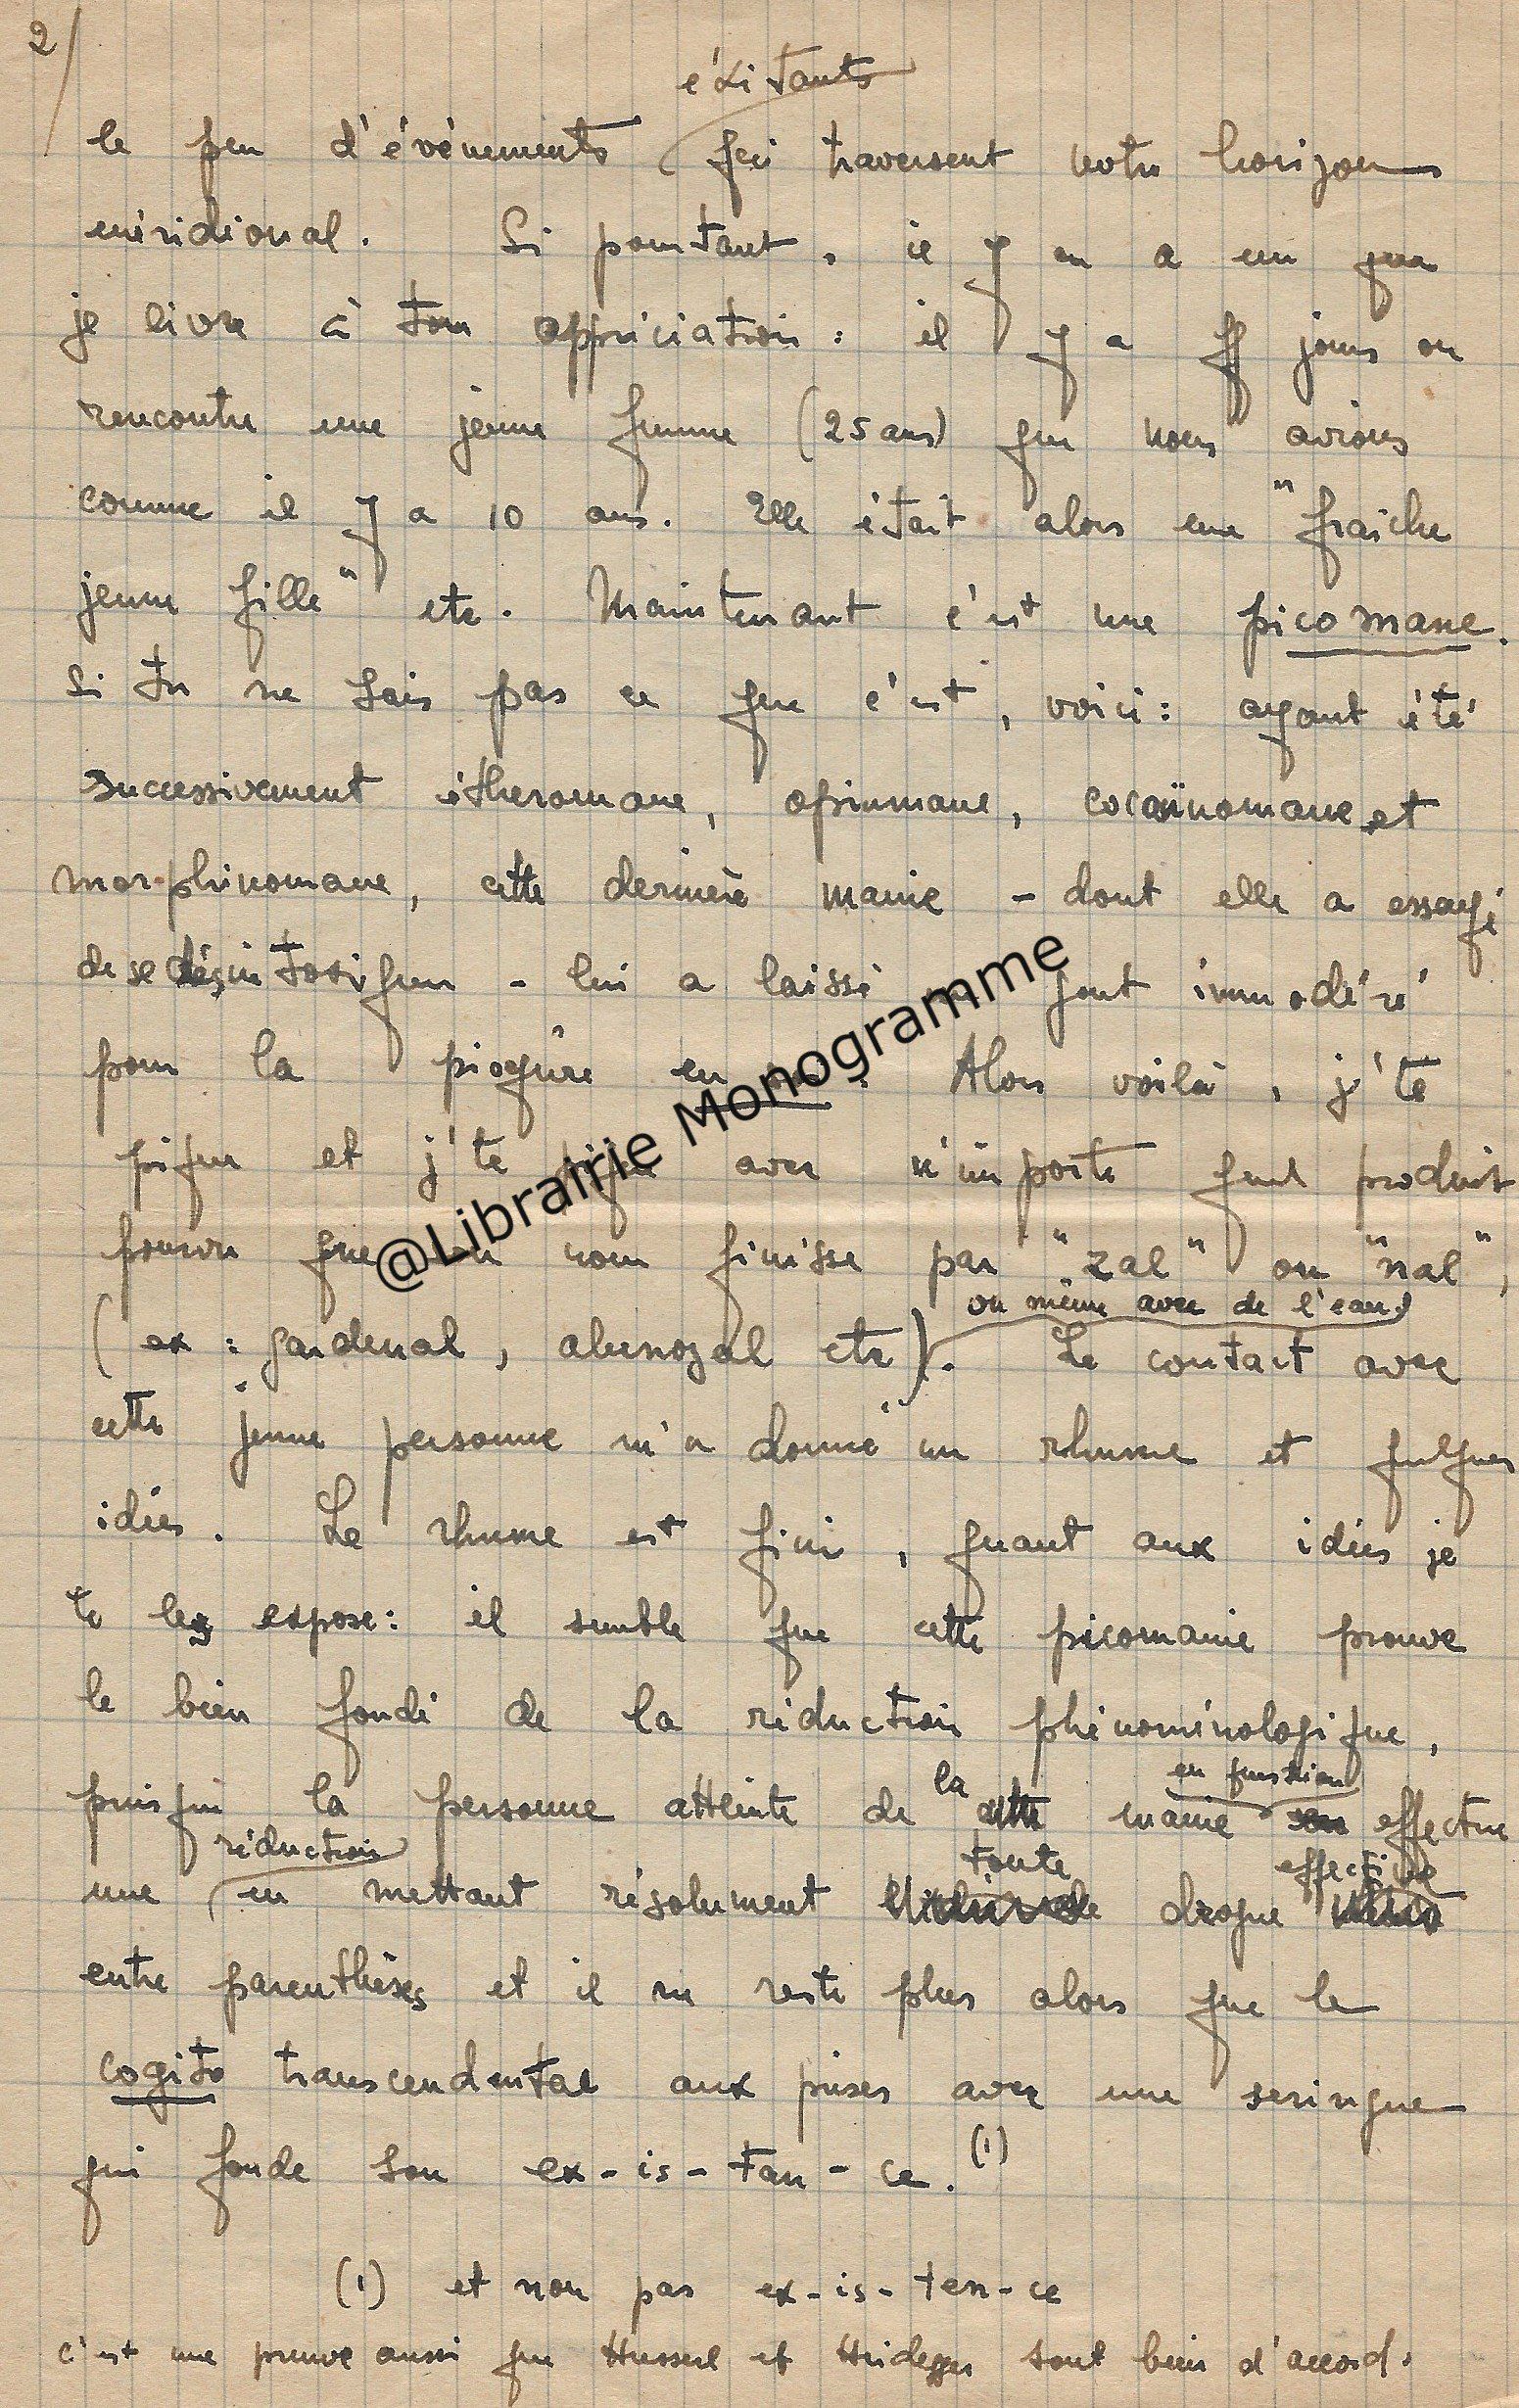 2/
éxitants
le peu d'événements qui traversent notre horizon
méridional. Si pourtant, il y en a un que
je livre à ton appréciation : il y a qq jours on
rencontre une jeune femme (25 ans) que nous avions
connue il y a 10 ans. Elle était alors une "fraîche
jeune fille" etc. Maintenant c'est une picomane.
Si tu ne sais pas ce que c'est, voici : ayant été
successivement étheromane, opiumane, cocaïnomane et
morphinomane, cette dernière manie - dont elle a essayé
de se désintoxiquer - lui a laissé un gout immodéré
pour la piqûre en soi. Alors voilà, j'te
pique et j'te pique avec n'importe quel produit
pourvu que son nom finisse par "zal" ou "nal",
ou même avec de l'eau)
(ex : gardenal, abenozal etc). Le contact avec
cette jeune personne m'a donné un rhume et quelques
idées. Le rhume est fini, quant aux idées je
te les expose : il semble que cette picomanie prouve
le bien fondé de la réduction phénoménologique,
la en question
puisque la personne atteinte de cette manie en effectue
réduction toute effective
une en mettant résolument drogue
entre parenthèses et il ne reste plus alors que le
cogito transcendental aux prises avec une seringue
qui fonde son ex-is-tan-ce. (1)
(1) et non pas ex-is-ten-ce
c'est une preuve aussi que Husserl et Heidegger sont bien d'accord.
@Librairie Monogramme